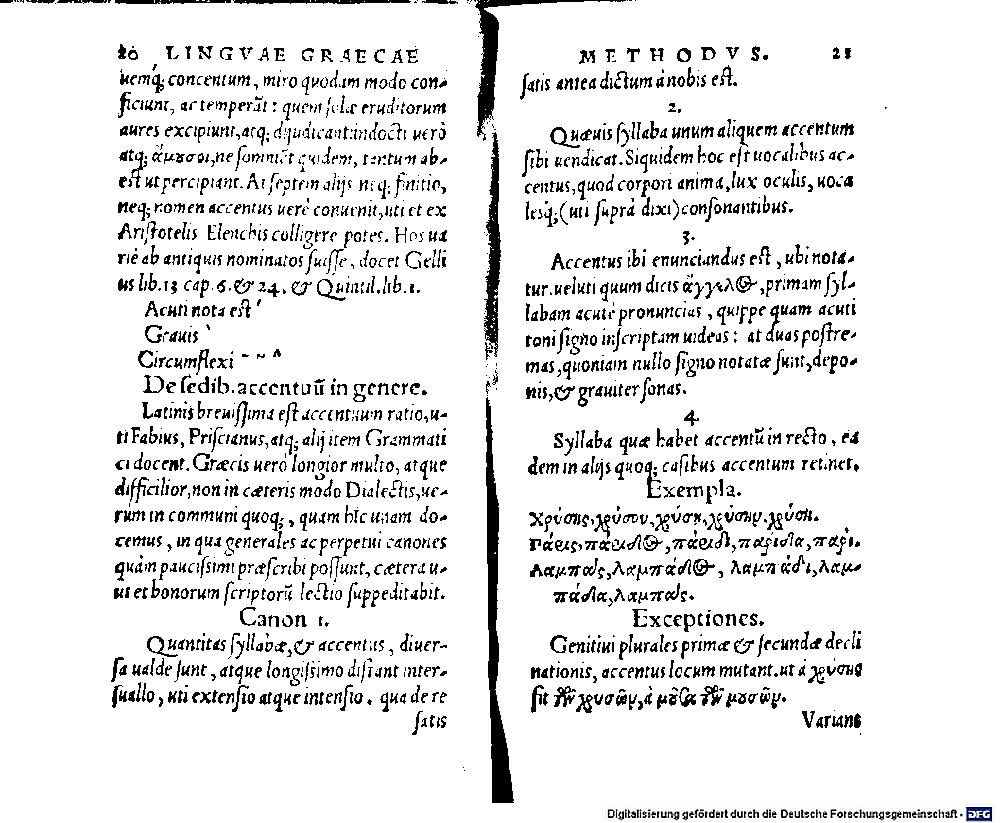 20 LINGVAE GRAECAE
uemq; concentum, miro quodam modo con-
ficiunt, ac temperāt: quem solæ eruditorum
aures excipiunt, atq; dijudicant: indocti uerò
atq; ἄμουσοι, ne somniāt quidem, tantum ab-
est ut percipiant. At septem alijs neq; finitio,
neq; nomen accentus uerè conuenit, uti et ex
Aristotelis Elenchis colligere potes. Hos ua
riè ab antiquis nominatos fuisse, docet Gelli
us lib. 13 cap. 6. & 24. & Quintil. lib. 1.
Acuti nota est ´
Grauis `
Circumflexi ~ ~ ^
De sedib. accentuū in genere.
Latinis breuissima est accentuum ratio, u-
ti Fabius, Priscianus, atq; alij item Grammati
ci docent. Græcis uerò longior multo, atque
difficilior, non in cæteris modo Dialectis, ue-
rùm in communi quoq;, quam hîc unam do-
cemus, in qua generales ac perpetui canones
quàm paucissimi præscribi possunt, cætera u-
sui et bonorum scriptorū lectio suppeditabit.
Canon 1.
Quantitas syllabæ, & accentus, diuer-
sa ualde sunt, atque longissimo distant inter-
uallo, uti extensio atque intensio. qua de re
satis
METHODVS. 21
satis antea dictum à nobis est.
2.
Quæuis syllaba unum aliquem accentum
sibi uendicat. Siquidem hoc est uocalibus ac-
centus, quod corpori anima, lux oculis, uoca
lesq; (uti suprà dixi) consonantibus.
3.
Accentus ibi enunciandus est, ubi nota-
tur. ueluti quum dicis ἄγγελος, primam syl-
labam acutè pronuncias, quippe quam acuti
toni signo inscriptam uideas: at duas postre-
mas, quoniam nullo signo notatæ sunt, depo-
nis, & grauiter sonas.
4.
Syllaba quæ habet accentū in recto, ea
dem in alijs quoq; casibus accentum retinet.
Exempla.
Χρύσης, χρύσου, χρύσῃ, χρύσην, χρύση.
Πάεις, πάειδος, πάειδι, πάειδα, πάει.
Λαμπάς, λαμπάδος, λαμπάδι, λαμ-
πάδα, λαμπάς.
Exceptiones.
Genitiui plurales primæ & secundæ decli
nationis, accentus locum mutant. ut à χρύσης
fit τῶν χρυσῶν, à μοῦσα τῶν μουσῶν.
Variant
Digitalisierung gefördert durch die Deutsche Forschungsgemeinschaft - DFG